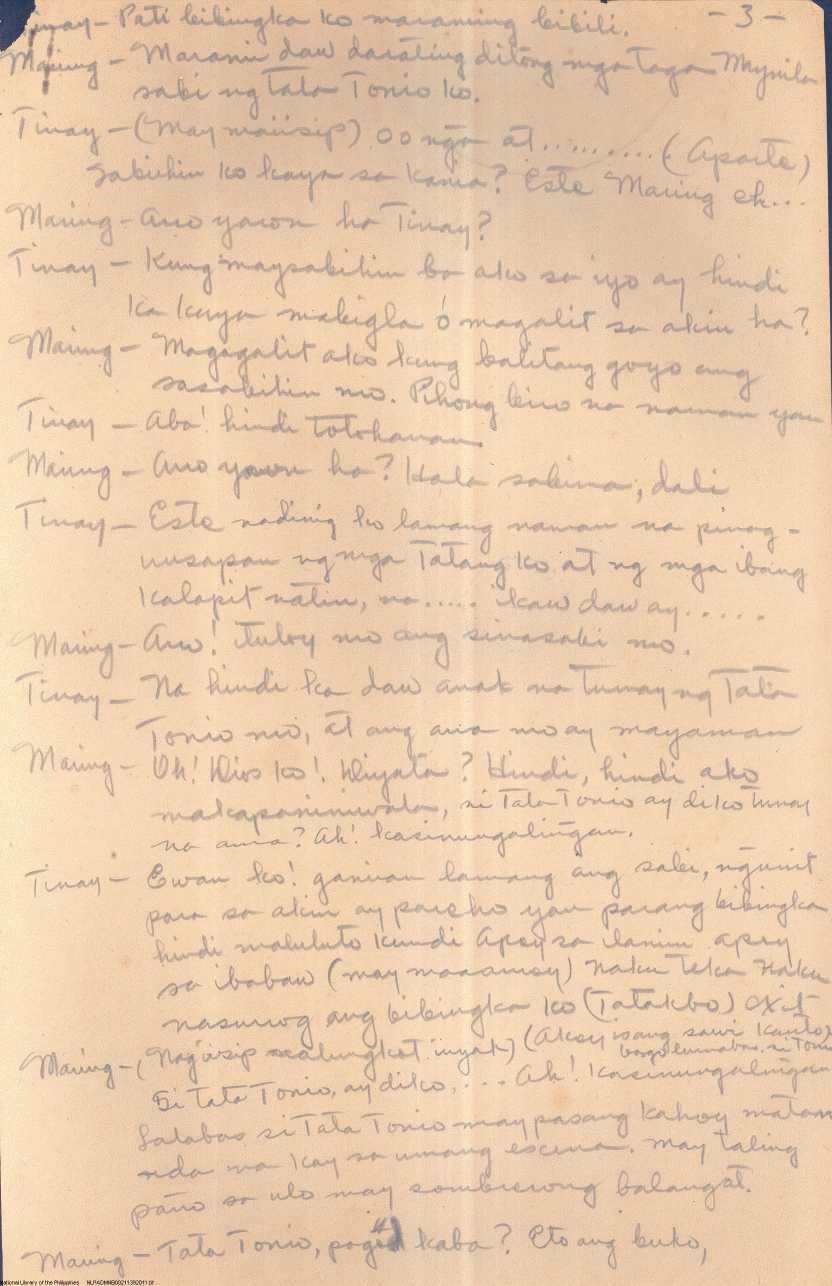 Tinay - Pati bibingka ko maraming bibili. - 3 -
Maring - Marami daw darating ditong mga taga Maynila
sabi ng Tata Tonio ko.
Tinay - (May maiisip) Oo nga at .......... (Aparte)
Sabihin ko kaya sa kania? Este Maring eh...
Maring - Ano yaon ha Tinay?
Tinay - Kung maysabihin ba ako sa iyo ay hindi
ka kaya mabigla ó magalit sa akin ha?
Maring - Magagalit ako kung balitang goyo ang
sasabihin mo. Pihong biro na naman yan
Tinay - Aba! hindi totohanan
Maring - Ano yaon ha? Hala sabima, dali
Tinay - Este nadinig ko lamang naman na pinag-
uusapan ng mga Tatang ko at ng mga ibang
Kalapit natin, na..... ikaw daw ay.....
Maring - Ano! ituloy mo ang sinasabi mo.
Tinay - Na hindi ka daw anak na tunay ng Tata
Tonio mo, at ang ama mo ay mayaman
Maring - Oh! Dios ko! Diyata? Hindi, hindi ako
makapaniniwala, si Tata Tonio ay di ko tunay
na ama? Ah! kasinungalingan.
Tinay - Ewan ko! ganian lamang ang sabi, ngunit
para sa akin ay pareho yan parang bibingka
hindi maluluto kundi apoy sa lanim apoy
sa ibabaw (may maaamoy) naku teka naku
nasunog ang bibingka ko (Tatakbo) exit
Maring - (Nagiisip malungkot iiyak) (Akoy isang sawi kanta)
bago lumabas si Tonio
Si Tata Tonio, ay diko, ... Ah! kasinungalingan
Lalabas si Tata Tonio may pasang kahoy matan
nda na kay sa unang escena. may taling
paño sa ulo may sombrerong balangat.
Maring - Tata Tonio, pagod kaba? Eto ang buko,
National Library of the Philippines NLPADMNB00211392011.tif